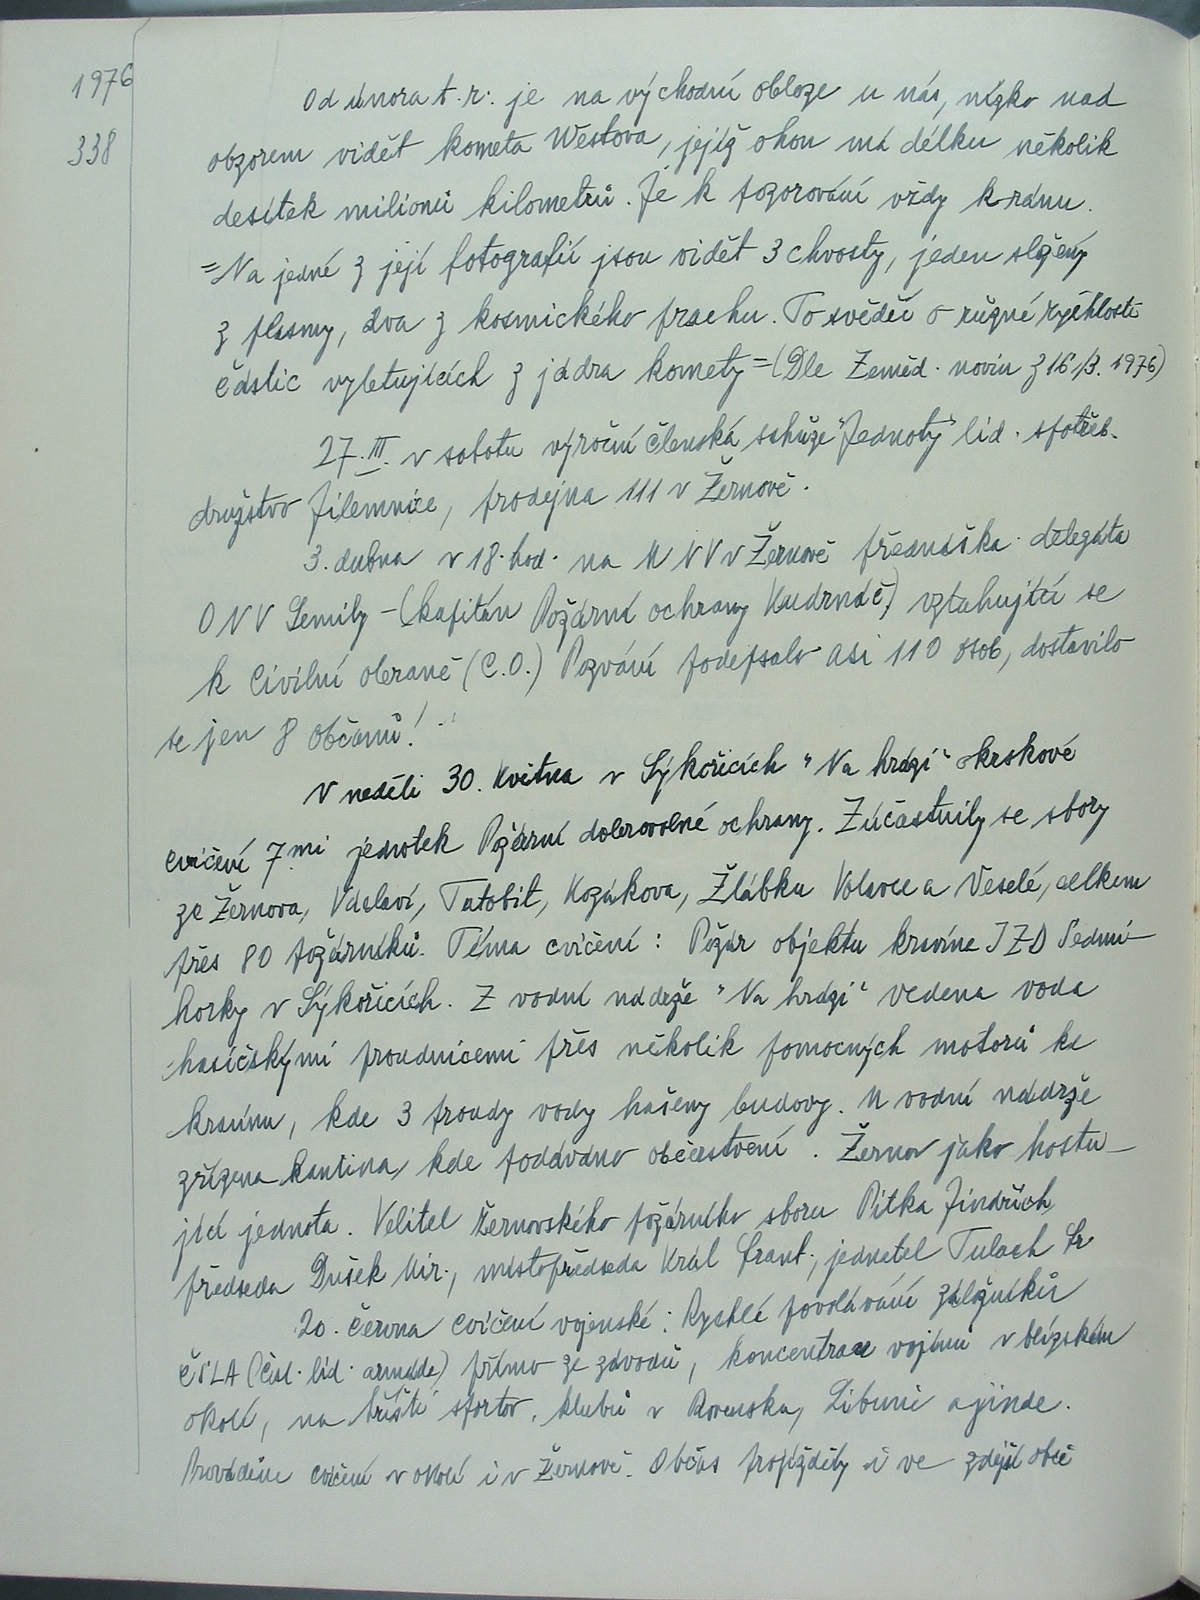 1976
338
Od února t.r. je na východní obloze u nás, nízko nad
obzorem vidět kometa Westova, jejíž ohon má délku několik
desítek milionů kilometrů. Je k pozorování vždy k ránu.
=Na jedné z její fotografií jsou vidět 3 chvosty, jeden složený
z plasmy, dva z kosmického prachu. To svědčí o různé rychlosti
částic vyletujících z jádra komety=(Dle Zeměd. novin z 16/3. 1976)
27. III. v sobotu výroční členská schůze "Jednoty" lid. spotřeb.
družstvo Jilemnice, prodejna 111 v Žernově.
3. dubna v 18. hod. na MNV v Žernově přednáška delegáta
ONV Semily - (kapitán Požární ochrany Kudrnáč) vztahující se
k Civilní obraně (C.O.) Pozvání podepsalo asi 110 osob, dostavilo
se jen 8 občanů!
V neděli 30. května v Sýkořicích "Na hrázi" okrskové
cvičení 7.mi jednotek Požární dobrovolné ochrany. Zúčastnily se sbory
ze Žernova, Václaví, Tatobit, Kozákova, Žlábku Volavce a Veselé, celkem
přes 80 požárníků. Téma cvičení: Požár objektu kravína JZD Sedmi-
horky v Sýkořicích. Z vodní nádrže "Na hrázi" vedena voda
hasičskými proudnicemi přes několik pomocných motorů ke
kravínu, kde 3 proudy vody hašeny budovy. U vodní nádrže
zřízena kantina, kde podáváno občerstvení. Žernov jako hostu-
jící jednota. Velitel Žernovského požárního sboru Pitka Jindřich,
předseda Dušek Mir., místopředseda Král Frant., jednatel Tulach Fr
20. června cvičení vojenské: Rychlé povolávání záložníků
ČSLA (Čsl. lid. armáde) přímo ze závodů, koncentrace vojínů v blízském
okolí, na hřišti sportov. klubů v Rovensku, Libuni a jinde.
Prováděno cvičení v okolí i v Žernově. Občas projížděly i ve zdejší obci